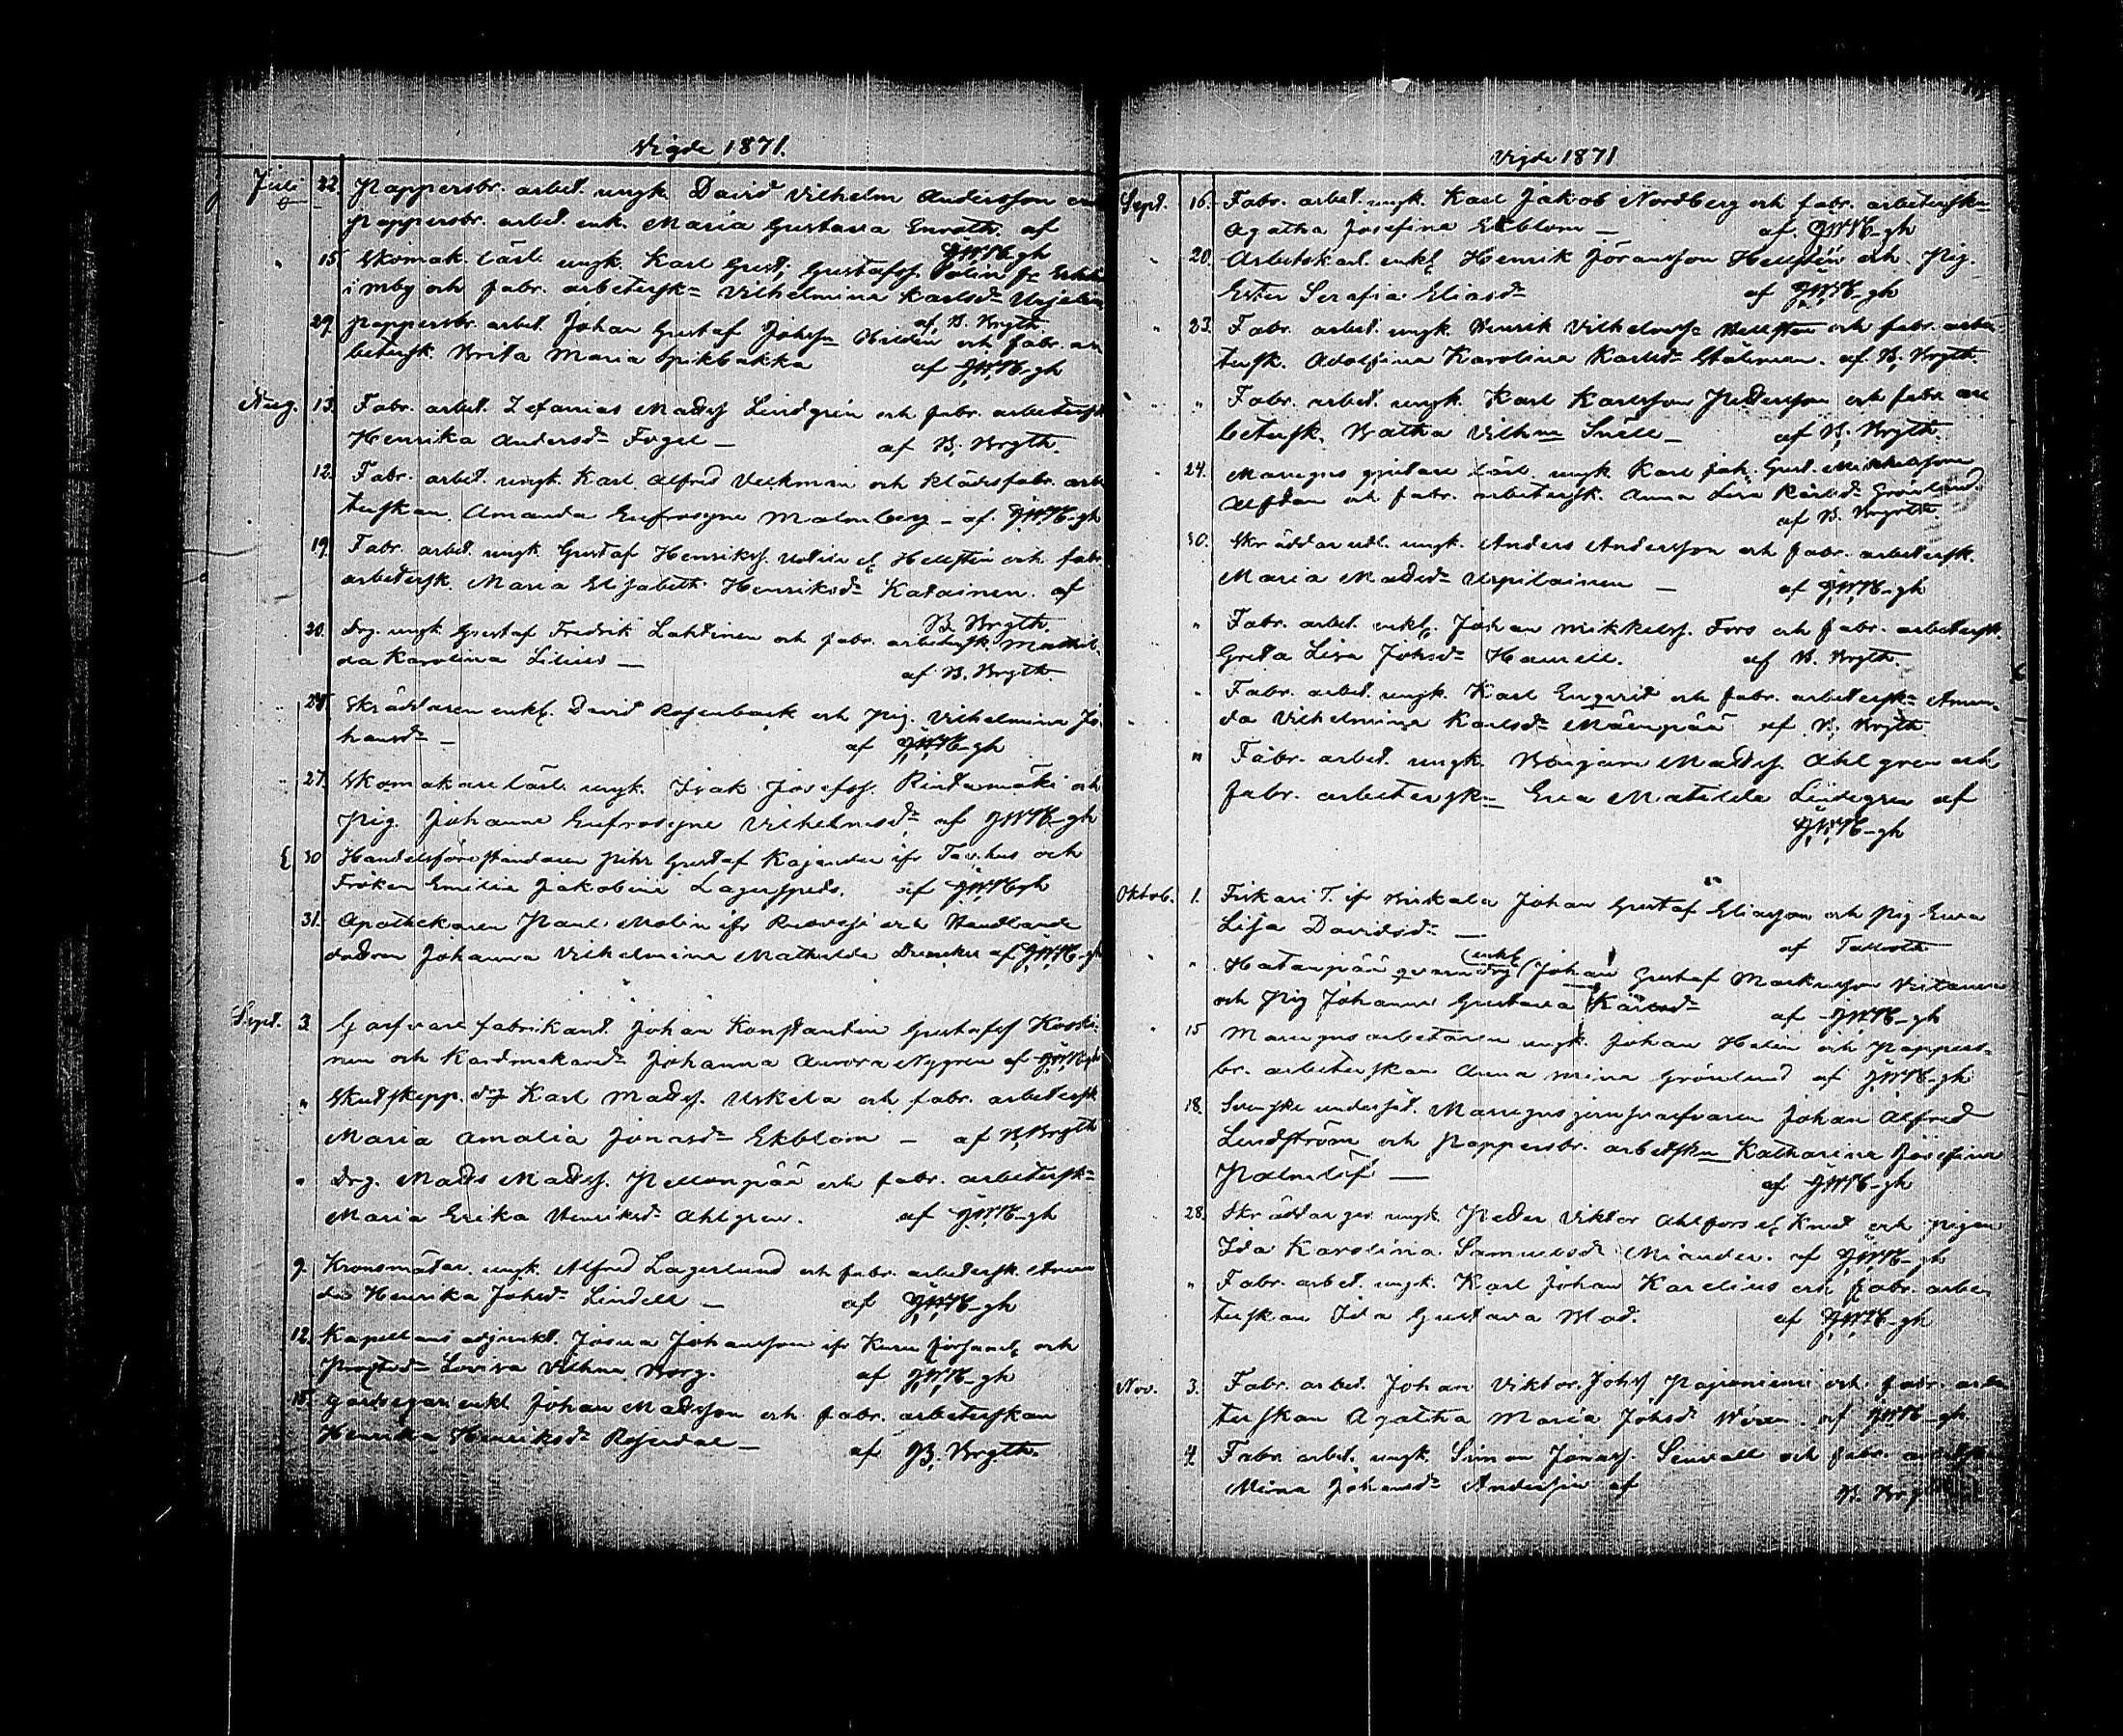 Vigde 1871.
Juli 22. Pappersbr. arbet. ungk. David Vilhelm Andersson och
pappersbr. arbet. enk. Maria Gustava Enroth. af
G.W.H-gh
" 15 Skomak. lärl. ungk. Karl Gust. Gustafss. Polin
i mby och fabr. arbetersk= Vilhelmina Karlsdr
af B. Brgth.
29. pappersbr. arbet. Johan Gustaf Johss= Hilden och fabr. ar
betersk. Brita Maria Spikbakka af G.W.H-gh
Aug. 13. Fabr. arbet. Zefanias Madss Lindgrén och fabr. arbetersk
Henrika Andersdr Fogel — af B. Brgth.
12. Fabr. arbet. ungk. Karl Alfred Veckman och klädesfabr. arbe
terskan Amanda Eufrosyne Malmberg – af G.W.H-gh
19. Fabr. arbet. ungk. Gustaf Henrikss. Hellstén och fabr.
arbetersk. Maria Elisabeth Henriksdr Katainen. af
B. Brgth.
20. Drg. ungk. Gustaf Fredrik Lahtinen och fabr. arbetersk. Mathil.
da Karolina Lilius — af B. Brgth.
Skräddaren enkl. David Rosenback och pig. Vilhelmina Jo
hansdr — af G.W.H-gh
" 27. Skomakare lärl. ungk. Isak Josefss. Rintamäki och
pig. Johanna Eufrosyne Vilhelmsdr af G.W.H-gh
30 Handelsföreståndaren Gustaf Kajander ifr Tav.hus och
Fröken Emilie Jakobine Lagerspetz. af G.W.H-gh
31. Apothekaren Paul Molin ifr Ruovesi och Handlande
dottren Johanna Vilhelmina Mathilda af G.W.H-gh
Sept. 3. Garfvare fabrikant. Johan Konstantin Gustafss Koski
nen och Kardmakaredr Johanna Aurora Nygren af G.W.H-gh
" Skutskepp. drg Karl Madss. Uskela och fabr. arbetersk
Maria Amalia Jonasdr Ekblom – af B. Brgth
" Drg. Matts Madss. Peltonpää och fabr. arbetersk=
Maria Erika Henriksdr Ahlgren. af G.W.H-gh
9. Kronomätar. ungk. Alfred Lagerlund och fabr. arbetersk. Aman
da Henrika Johsdr Lindell — af G.W.H-gh
12. Kapellans adjunkt. Josua Johansson ifr Kuru församl. och
Prostedr Lovisa Vilhma Borg. af G.W.H-gh
15. gårdsegar. enkl Johan Madsson och fabr. arbeterskan
Henrika Henriksdr Rosendal — af B. Brgth.
Vigde 1871
Sept. 16. Fabr. arbet. ungk. Karl Jakob Nordberg och fabr. arbeterska
Agatha Josefina Ekblom — af G.W.H-gh
" 20. Arbetskarl. enkl. Henrik Jöransson Hellstén och pig.
Ester Serafia Eliasdr af G.W.H-gh
" 23. Fabr. arbet. ungk. Henrik Vilhelmss= Hellsten och fabr. arbe
tersk. Adolfina Karolina Karlsdr Stålman. af B. Brgth.
" Fabr. arbet. ungk. Karl Karlsson Pettersson och fabr. ar
betersk. Batha Vilhma Snell — af B. Brgth.
24. Maregns gjutare lärl. ungk. Karl Joh. Gust. Mikkelsson
och fabr. arbetersk. Anna Lisa Karlsdr Grönlund.
af B. Brgth.
30. Skräddar utl. ungk. Anders Andersson och fabr. arbetersk.
Maria Madsdr Urpilainen — af G.W.H-gh
" Fabr. arbet. enkl. Johan Mikkelss. Fors och fabr. arbetersk.
Greta Lisa Johsdr Haurell. af B. Brgth.
" Fabr. arbet. ungk. Karl Engvist och fabr. arbetersk= Aman
da Vilhelmina Karlsdr Mäenpää af B. Brgth
" Fabr. arbet. ungk. Benjam Madss. Ahlgren och
fabr. arbetersk= Eva Matilda Lindegren af
G.W.H-gh
Oktob. 1. Friskari T. ifr Birkala Johan Gustaf Eliasson och pig Eva
Lisa Davidsdr — af Tallroth
enkl
" Hatanpää qvarn drg (Johan Gustaf Markusson Viitanen
och pig Johanna Gustava Karlsdr af G.W.H-gh
15 Maregnsarbetaren ungk. Johan Helin och pappers-
br. arbeterskan Anna Mina Grönlund af G.W.H-gh
18. Svenske undersåt. Maregns jernsvarfvaren Johan Alfred
Lindström och pappersbr. arbetska Katharina Josefina
Palmlöf — af G.W.H-gh
28. Skräddar ges. ungk. Peter Viktor Ahlfors el. Knut och pigan
Ida Karolina Samuelsdr Miander. af G.W.H-gh
" Fabr. arbet. ungk. Karl Johan Karelius och fabr. arbe
terskan Ida Gustava Blad. af G.W.H-gh
Nov. 3. Fabr. arbet. Johan Viktor Johss Pajuniemi och fabr. arbe
terskan Agatha Maria Johsdr Wirén. af G.W.H-gh
4 Fabr. arbet. ungk. Simon Jonass. Senvall och fabr.
Mina Johansdr Andersin af B. Brgth